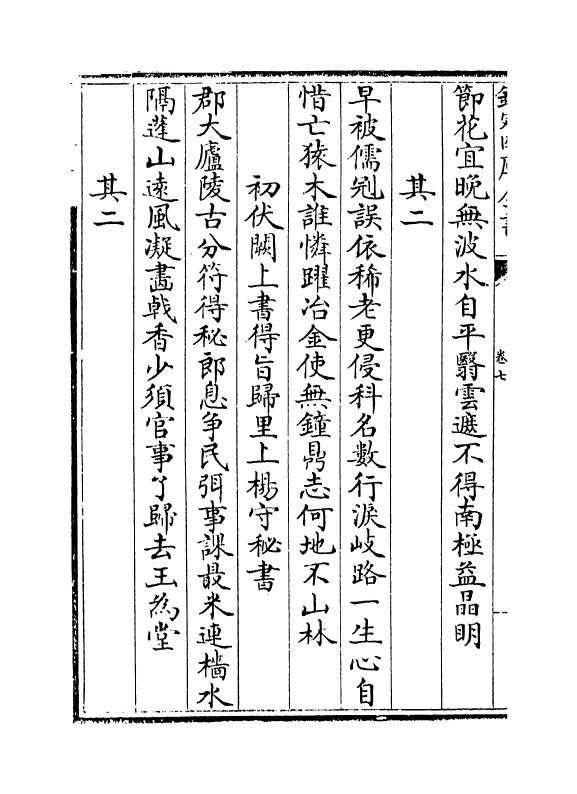 欽定四庫全書
卷七
節花宜晚無波水自平翳雲遮不得南極益晶明
其二
早被儒冠誤依稀老更侵科名數行淚歧路一生心自
惜亡猿木誰憐躍冶金使無鐘鼎志何地不山林
初伏闕上書得旨歸里上楊守秘書
郡大廬陵古分符得秘郎息争民弭事課最米連檣水
隔蓬山逺風凝畵戟香少須官事了歸去玉為堂
其二